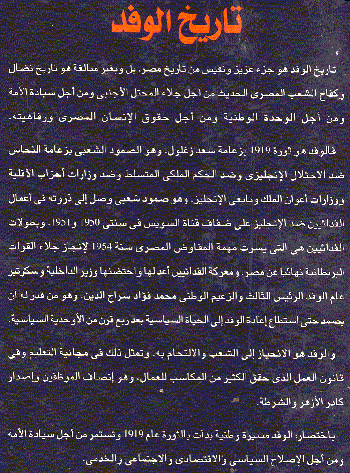 تاريخ الوفد
تاريخ الوفد هو جزء عزيز ونفيس من تاريخ مصر. بل وبغير مبالغة هو تاريخ نضال
وكفاح الشعب المصرى الحديث من أجل جلاء المحتل الأجنبى ومن أجل سيادة الأمة
ومن أجل الوحدة الوطنية ومن أجل حقوق الإنسان المصرى ورفاهيته.
فالوفد هو ثورة 1919 بزعامة سعد زغلول. وهو الصمود الشعبى بزعامة النحاس
ضد الاحتلال الإنجليزى وضد الحكم الملكى المتسلط وضد وزارات أحزاب الأقلية
ووزارات أعوان الملك وتابعى الإنجليز. وهو صمود شعبى وصل إلى ذروته فى أعمال
الفدائيين ضد الإنجليز على ضفاف قناة السويس فى سنتى 1950 و1951. وبطولات
الفدائيين هى التى يسرت مهمة المفاوض المصرى سنة 1954 لإنجاز جلاء القوات
البريطانية نهائيا عن مصر. ومعركة الفدائيين أعدلها واحتضنها وزير الداخلية وسكرتير
عام الوفد الرئيس الثالث والزعيم الوطنى محمد فؤاد سراج الدين. وهو من قدر له أن
يصمد حتى استطاع إعادة الوفد إلى الحياة السياسية بعد ربع قرن من الأوحدية السياسية.
والوفد هو الانحياز إلى الشعب والالتحام به. وتمثل ذلك فى مجانية التعليم وفى
قانون العمل الذى حقق الكثير من المكاسب للعمال. وهو إنصاف الموظفين وإصدار
كادر الأزهر والشرطة.
باختصار، الوفد مسيرة وطنية بدأت بالثورة عام 1919 وتستمر من أجل سيادة الأمة
ومن أجل الإصلاح السياسى والاقتصادى والاجتماعى والخدمى.